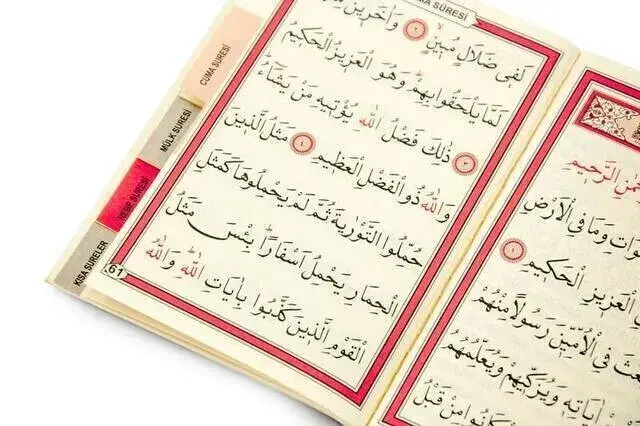 الرَّحِيمِ
وَمَا فِي الْاَرْضِ
الْعَزِيزِ الْحَكِيمِ ١
فِي الْاُمِّيّنَ رَسُولاً مِنْهُمْ
اٰيَاتِهِ وَيُزَكِّيهِمْ وَيُعَلِّمُهُمُ
كَانُوا مِنْ قَبْلُ
SÛRESİ
لَفِى ضَلَالٍ مُبِينٍ ٢ وَاٰخَرِينَ
لَمَّا يَلْحَقُوا بِهِمْ وَهُوَ الْعَزِيزُ الْحَكِيمُ
٣ ذٰلِكَ فَضْلُ اللّٰهِ يُؤْتِيهِ مَنْ يَشَاءُ
وَاللّٰهُ ذُو الْفَضْلِ الْعَظِيمِ ٤ مَثَلُ الَّذِينَ
حُمِّلُوا التَّوْرٰيةَ ثُمَّ لَمْ يَحْمِلُوهَا كَمَثَلِ
الْحِمَارِ يَحْمِلُ اَسْفَارًا بِئْسَ مَثَلُ
الْقَوْمِ الَّذِينَ كَذَّبُوا بِاٰيَاتِ اللّٰهِ وَاللّٰهُ
61
CUMA SURESİ
MÜLK SURESİ
NEBE SURESİ
KISA SURELER